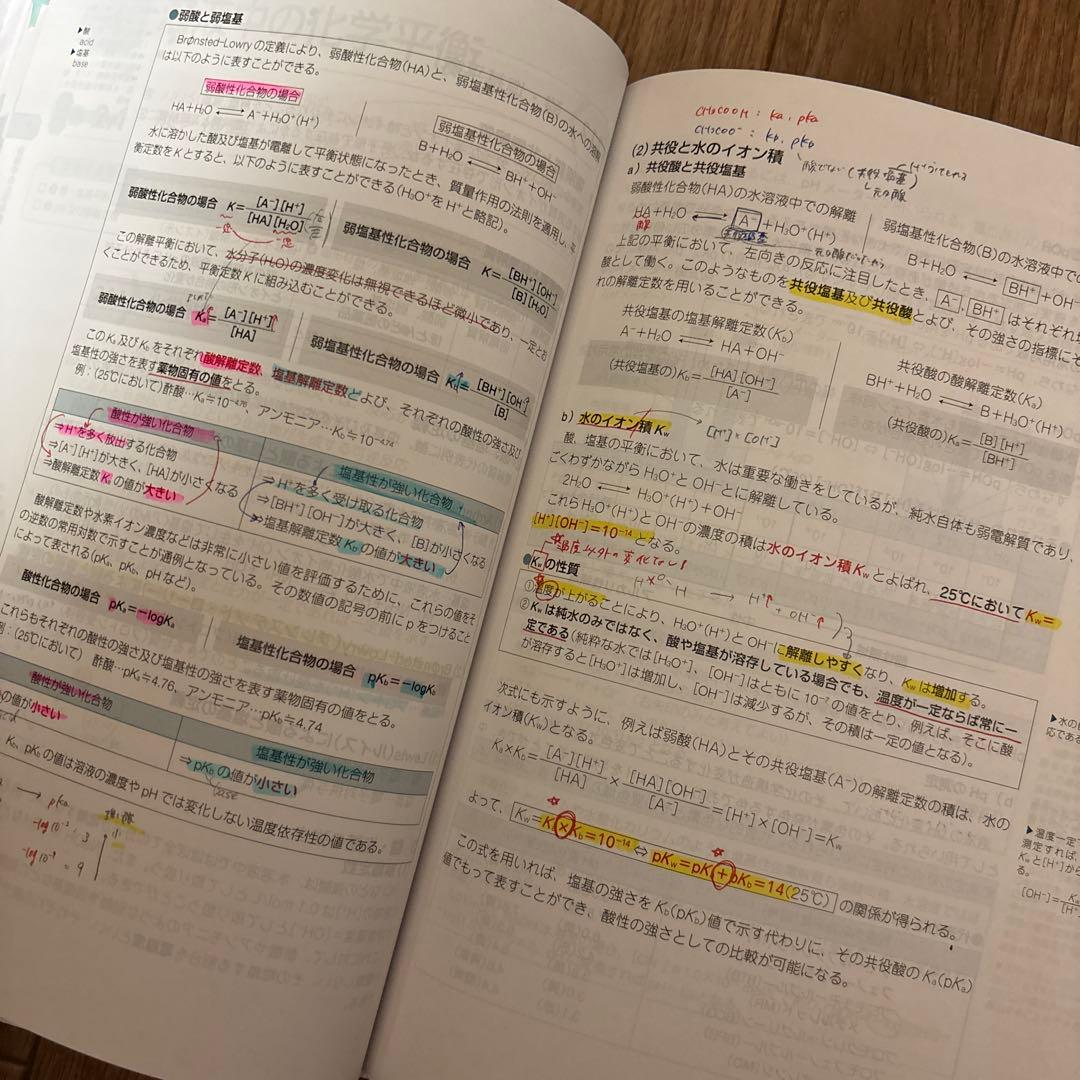 ●弱酸と弱塩基
▶酸
acid
▶塩基
base
Brønsted-Lowry の定義により、弱酸性化合物(HA)と、弱塩基性化合物(B)の水への溶解
は以下のように表すことができる。
弱酸性化合物の場合
HA+H₂O ⇄ A⁻+H₃O⁺(H⁺)
弱塩基性化合物の場合
B+H₂O ⇄ BH⁺+OH⁻
水に溶かした酸及び塩基が電離して平衡状態になったとき、質量作用の法則を適用し、平
衡定数をKとすると、以下のように表すことができる(H₃O⁺をH⁺と略記)。
弱酸性化合物の場合 K=[A⁻][H⁺]/[HA][H₂O]
弱塩基性化合物の場合 K=[BH⁺][OH⁻]/[B][H₂O]
この解離平衡において、水分子(H₂O)の濃度変化は無視できるほど微小であり、一定とお
くことができるため、平衡定数Kに組み込むことができる。
弱酸性化合物の場合 Kₐ=[A⁻][H⁺]/[HA]
弱塩基性化合物の場合 K_b=[BH⁺][OH⁻]/[B]
このKₐ及びK_bをそれぞれ酸解離定数、塩基解離定数とよび、それぞれの酸性の強さ及び
塩基性の強さを表す薬物固有の値をとる。
例:(25℃において)酢酸…Kₐ≒10⁻⁴·⁷⁶、アンモニア…K_b≒10⁻⁴·⁷⁴
酸性が強い化合物
⇒H⁺を多く放出する化合物
⇒[A⁻][H⁺]が大きく、[HA]が小さくなる
⇒酸解離定数Kₐの値が大きい
塩基性が強い化合物
⇒H⁺を多く受け取る化合物
⇒[BH⁺][OH⁻]が大きく、[B]が小さくなる
⇒塩基解離定数K_bの値が大きい
酸解離定数や水素イオン濃度などは非常に小さい値を評価するために、これらの値をそ
の逆数の常用対数で示すことが通例となっている。その数値の記号の前にpをつけること
によって表される(pKₐ, pK_b, pHなど)。
酸性化合物の場合 pKₐ=−logKₐ
塩基性化合物の場合 pK_b=−logK_b
これらもそれぞれの酸性の強さ及び塩基性の強さを表す薬物固有の値をとる。
例:(25℃において) 酢酸…pKₐ≒4.76、アンモニア…pK_b≒4.74
酸性が強い化合物
の値が小さい
塩基性が強い化合物
⇒pK_bの値が小さい
base
Kₐ, pK_bの値は溶液の濃度やpHでは変化しない温度依存性の値である。
→ pka
-log10⁻³ : 3
= 9
CH₃COOH : ka, pka
CH₃COO⁻ : kb, pkb
(2) 共役と水のイオン積
a) 共役酸と共役塩基
弱酸性化合物(HA)の水溶液中での解離
HA+H₂O ⇄ A⁻+H₃O⁺(H⁺)
弱塩基性化合物(B)の水溶液中での
B+H₂O ⇄ BH⁺+OH⁻
上記の平衡において、左向きの反応に注目したとき、A⁻, BH⁺はそれぞれ
酸として働く。このようなものを共役塩基及び共役酸とよび、その強さの指標にそ
れの解離定数を用いることができる。
共役塩基の塩基解離定数(K_b)
A⁻+H₂O ⇄ HA+OH⁻
(共役塩基の)K_b=[HA][OH⁻]/[A⁻]
共役酸の酸解離定数(Kₐ)
BH⁺+H₂O ⇄ B+H₃O⁺(H⁺)
(共役酸の)Kₐ=[B][H⁺]/[BH⁺]
b) 水のイオン積 K_w
[H⁺]×[OH⁻]
酸、塩基の平衡において、水は重要な働きをしているが、純水自体も弱電解質であり、
ごくわずかながらH₃O⁺とOH⁻とに解離している。
2H₂O ⇄ H₃O⁺(H⁺)+OH⁻
これらH₃O⁺(H⁺)とOH⁻の濃度の積は水のイオン積K_wとよばれ、25℃においてK_w=
[H⁺][OH⁻]=10⁻¹⁴となる。
☆温度以外の変化なし!
●K_wの性質
H O H → H⁺↑ + OH⁻↑
①温度が上がることにより、H₃O⁺(H⁺)とOH⁻に解離しやすくなり、K_wは増加する。
②K_wは純水のみではなく、酸や塩基が溶存している場合でも、温度が一定ならば常に一
定である(純粋な水では[H₃O⁺]、[OH⁻]はともに10⁻⁷の値をとり、例えば、そこに酸
が溶存すると[H₃O⁺]は増加し、[OH⁻]は減少するが、その積は一定の値となる)。
次式にも示すように、例えば弱酸(HA)とその共役塩基(A⁻)の解離定数の積は、水の
イオン積(K_w)となる。
Kₐ×K_b=[A⁻][H⁺]/[HA]×[HA][OH⁻]/[A⁻]=[H⁺]×[OH⁻]=K_w
よって、K_w=Kₐ×K_b=10⁻¹⁴⇔pK_w=pKₐ+pK_b=14(25℃)の関係が得られる。
この式を用いれば、塩基の強さをK_b(pK_b)値で示す代わりに、その共役酸のKₐ(pKₐ)
値でもって表すことができ、酸性の強さとしての比較が可能になる。
▶水の
応である
▶温度一定
測定すれば、
K_wと[H⁺]から
る。